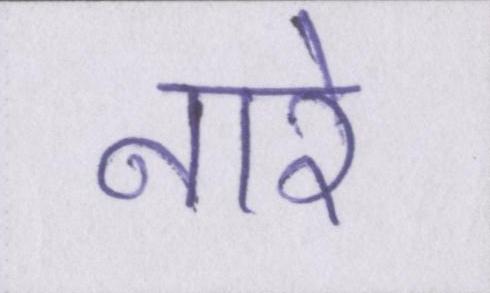 नारे